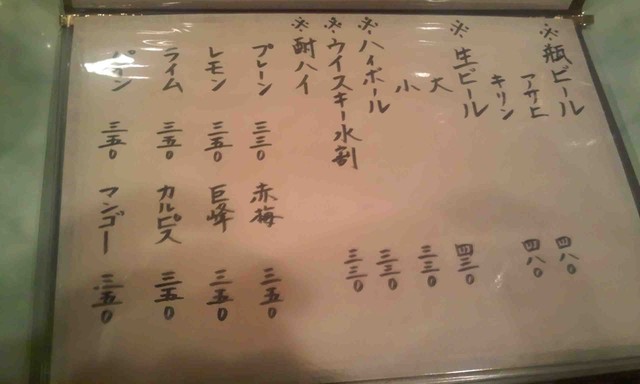 ※瓶ビール
アサヒ 四八〇
キリン 四八〇
※生ビール
大 四三〇
小 三三〇
※ハイボール 三三〇
※ウイスキー水割 三三〇
※酎ハイ
プレーン 三三〇 赤梅 三五〇
レモン 三五〇 巨峰 三五〇
ライム 三五〇 カルピス 三五〇
パイン 三五〇 マンゴー 三五〇